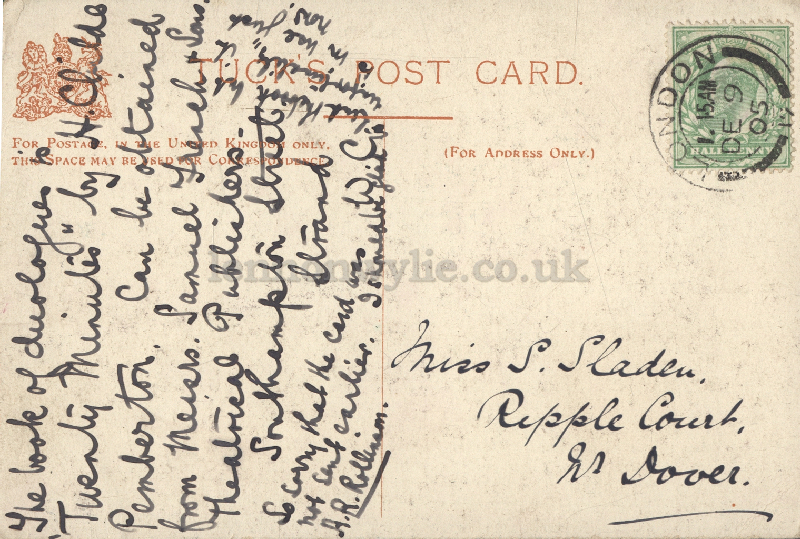 TUCK'S POST CARD.
FOR POSTAGE, IN THE UNITED KINGDOM ONLY,
THIS SPACE MAY BE USED FOR CORRESPONDENCE
(FOR ADDRESS ONLY.)
LONDON
1. 15 AM
DE 9
05
HALFPENNY
The book of duologues is
"Twenty Minutes" by H. Childe
Pemberton. Can be obtained
from Messrs. Samuel French & Sons.
Theatrical Publishers
Southampton Street
Strand
So sorry that the card was
not sent earlier.
A. R. Rollinson.
lennonwylie.co.uk
Miss S. Sladen,
Ripple Court,
Nr Dover.